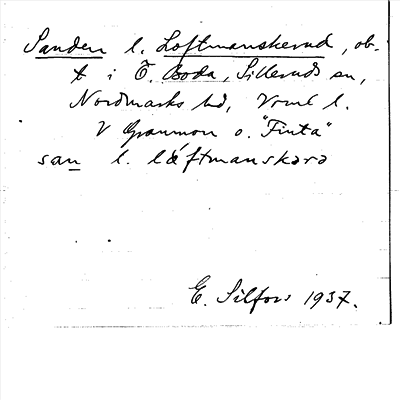 Sanden l. Loftmanskerud, ob-
t i Ö. Boda, Silleruds sn,
Nordmarks hd, Vrml l.
V Granmon o. "Finta"
san l. låftmanskərə
E. Silfors 1937.